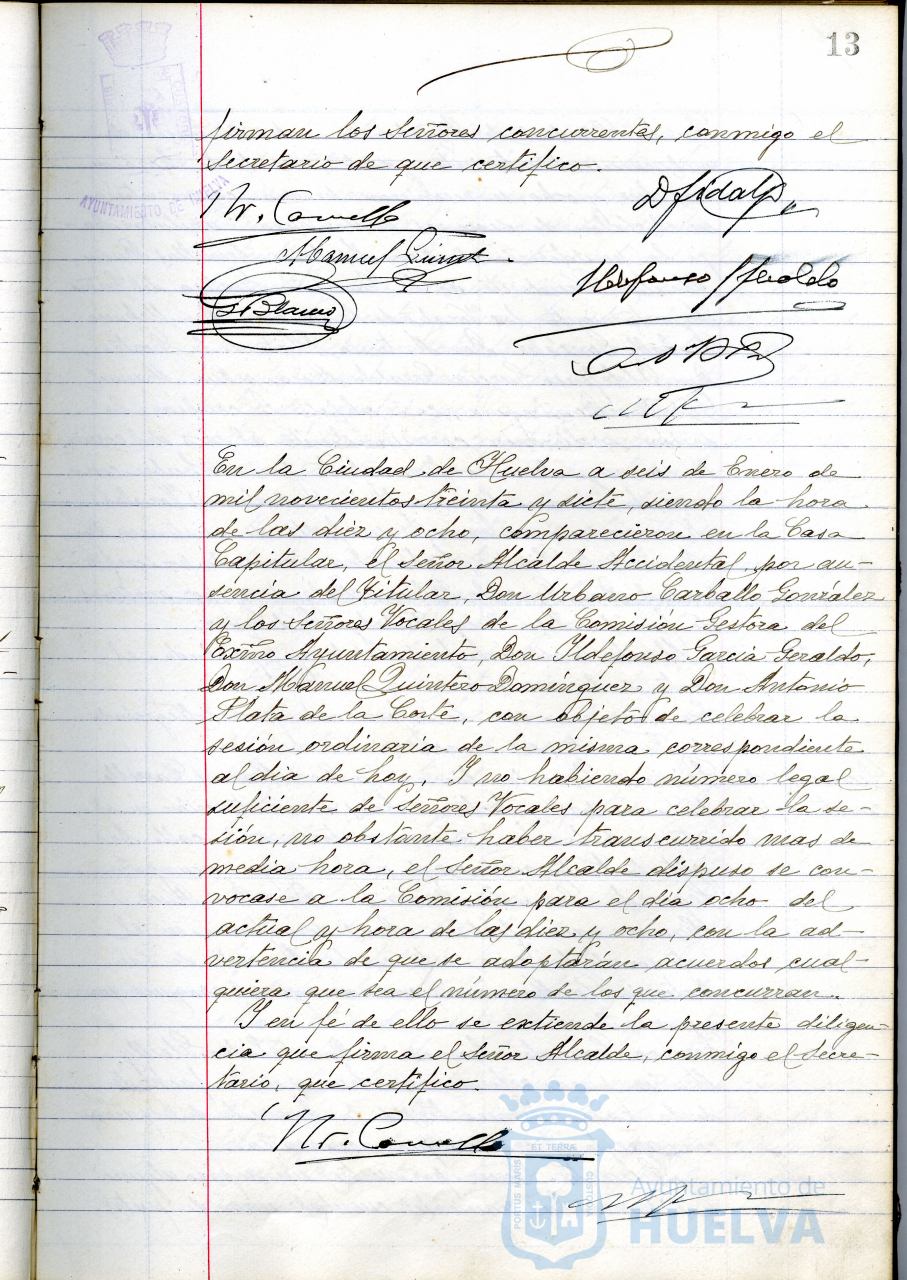 13
firman los Señores concurrentes, conmigo el
Secretario de que certifico.
AYUNTAMIENTO DE HUELVA
D Fidalgo
Manuel
Ildefonso Geraldo
Blanco
En la Ciudad de Huelva a seis de Enero de
mil novecientos treinta y siete, siendo la hora
de las diéz y ocho, comparecieron en la Casa
Capitular, el Señor Alcalde Accidental, por au-
sencia del Titular, Don Urbano Carballo González
y los Señores Vocales de la Comisión Gestora del
Excmo Ayuntamiento, Don Ildefonso García Geraldo,
Don Manuel Quintero Domínguez y Don Antonio
Plata de la Corte, con objeto de celebrar la
sesión ordinaria de la misma correspondiente
al dia de hoy. Y no habiendo número legal
suficiente de Señores Vocales para celebrar la se-
sión, no obstante haber transcurrido mas de
media hora, el Señor Alcalde dispuso se con-
vocase a la Comisión para el día ocho del
actual y hora de las diez y ocho, con la ad-
vertencia de que se adoptarán acuerdos cual-
quiera que sea el número de los que concurran.
Y en fé de ello se extiende la presente diligen-
cia que firma el Señor Alcalde, conmigo el Secre-
tario, que certifico.
ET TERRÆ
PORTUS MARIS
CUSTODIA
Ayuntamiento de
HUELVA